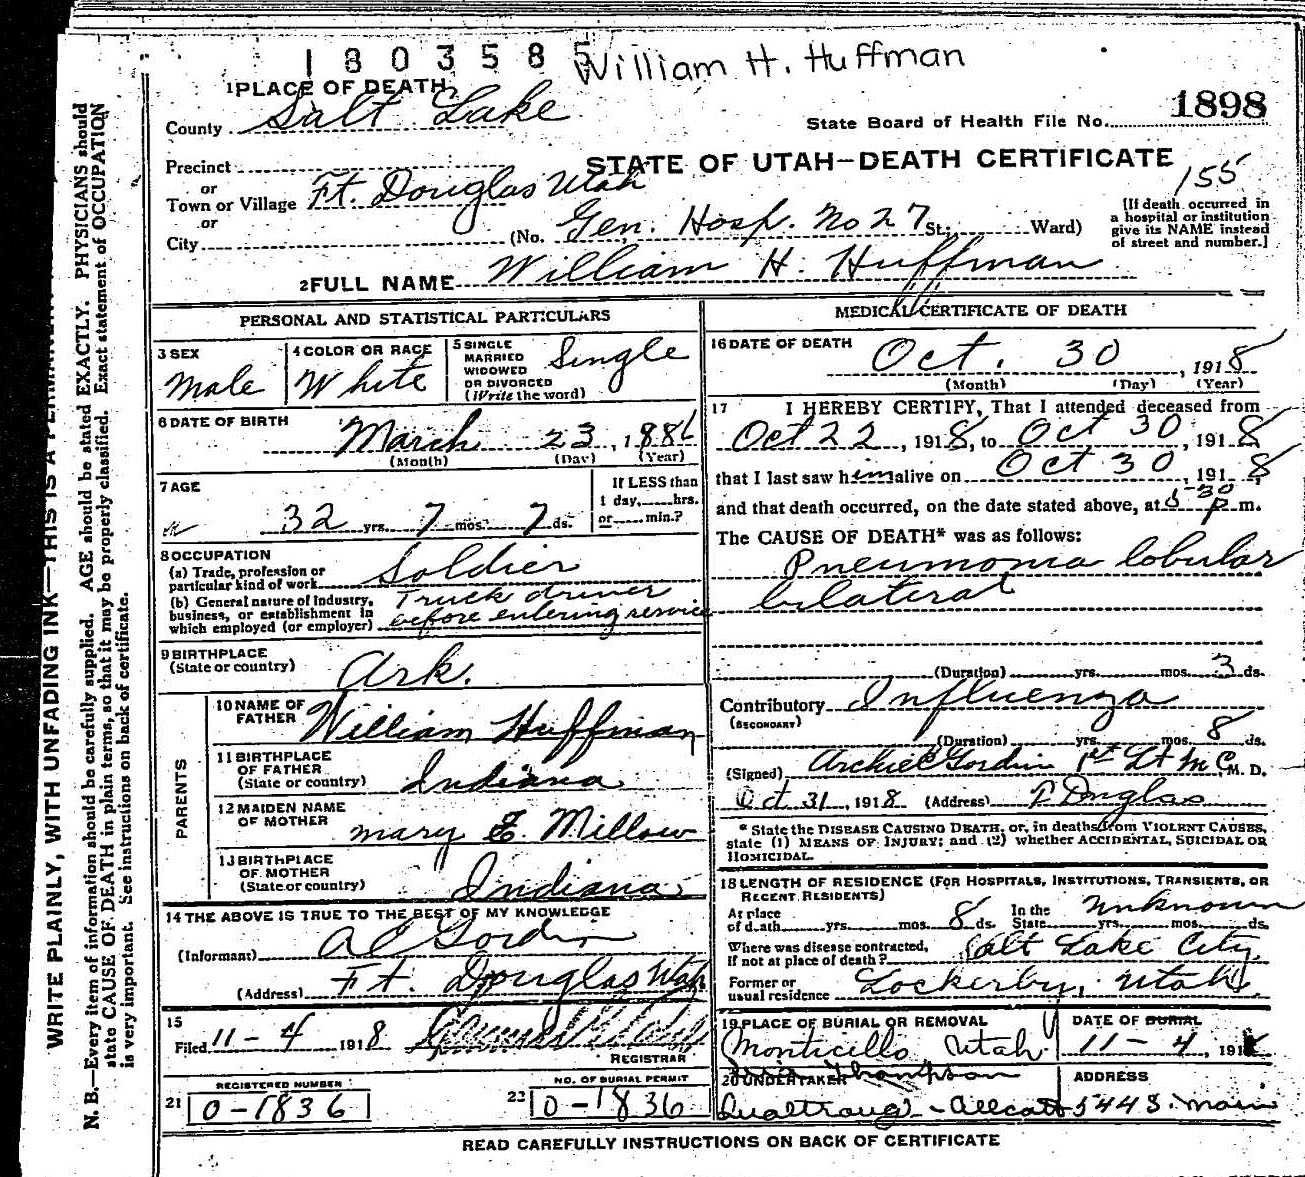 1803585 William H. Huffman
1 PLACE OF DEATH
County Salt Lake
State Board of Health File No. 1898
Precinct
STATE OF UTAH—DEATH CERTIFICATE
or
Town or Village Ft. Douglas Utah
155
or
City (No. Gen. Hosp. No 27 St; Ward)
[If death occurred in
a hospital or institution
give its NAME instead
of street and number.]
2 FULL NAME William H. Huffman
PERSONAL AND STATISTICAL PARTICULARS
3 SEX
Male
4 COLOR OR RACE
White
5 SINGLE
MARRIED
WIDOWED
OR DIVORCED
(Write the word)
Single
6 DATE OF BIRTH
March 23, 1886
(Month) (Day) (Year)
7 AGE
32 yrs. 7 mos. 7 ds.
If LESS than
1 day, hrs.
or min.?
8 OCCUPATION
(a) Trade, profession or
particular kind of work Soldier
(b) General nature of industry,
business, or establishment in
which employed (or employer)
Truck driver
before entering service
9 BIRTHPLACE
(State or country) Ark.
PARENTS
10 NAME OF
FATHER William Huffman
11 BIRTHPLACE
OF FATHER
(State or country) Indiana
12 MAIDEN NAME
OF MOTHER Mary E. Millow
13 BIRTHPLACE
OF MOTHER
(State or country) Indiana
14 THE ABOVE IS TRUE TO THE BEST OF MY KNOWLEDGE
(Informant) A C Gordin
(Address) Ft. Douglas Utah
15
Filed 11-4 1918
REGISTRAR
REGISTERED NUMBER
21 0-1836
NO. OF BURIAL PERMIT
23 0-1836
MEDICAL CERTIFICATE OF DEATH
16 DATE OF DEATH
Oct. 30, 1918
(Month) (Day) (Year)
17 I HEREBY CERTIFY, That I attended deceased from
Oct 22, 1918, to Oct 30, 1918
that I last saw him alive on Oct 30, 1918,
and that death occurred, on the date stated above, at 5-30 p m.
The CAUSE OF DEATH* was as follows:
Pneumonia lobular
bilateral
(Duration) yrs. mos. 3 ds.
Contributory Influenza
(SECONDARY)
(Duration) yrs. mos. 8 ds.
(Signed) Archie C Gordin 1st Lt M C M. D.
Oct 31, 1918 (Address) Douglas
* State the DISEASE CAUSING DEATH, or, in deaths from VIOLENT CAUSES,
state (1) MEANS OF INJURY; and (2) whether ACCIDENTAL, SUICIDAL OR
HOMICIDAL.
18 LENGTH OF RESIDENCE (FOR HOSPITALS, INSTITUTIONS, TRANSIENTS, OR
RECENT RESIDENTS)
At place
of death yrs. mos. 8 ds.
In the
State yrs. mos. ds.
Unknown
Where was disease contracted,
if not at place of death? Salt Lake City
Former or
usual residence Lockerby, Utah
19 PLACE OF BURIAL OR REMOVAL
Monticello Utah
DATE OF BURIAL
11-4, 1918
20 UNDERTAKER
Thompson
ADDRESS
544 S. Main
READ CAREFULLY INSTRUCTIONS ON BACK OF CERTIFICATE
WRITE PLAINLY, WITH UNFADING INK—THIS IS A PERMANENT
N. B.—Every item of information should be carefully supplied. AGE should be stated EXACTLY. PHYSICIANS should
state CAUSE OF DEATH in plain terms, so that it may be properly classified. Exact statement of OCCUPATION
is very important. See instructions on back of certificate.